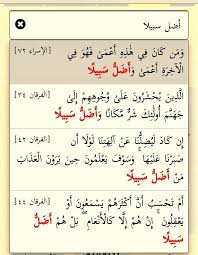 أضل سبيلا
وَمَن كَانَ فِي هَٰذِهِ أَعْمَىٰ فَهُوَ فِي [الإسراء ٧٢]
الْآخِرَةِ أَعْمَىٰ وَأَضَلُّ سَبِيلًا
الَّذِينَ يُحْشَرُونَ عَلَىٰ وُجُوهِهِمْ إِلَىٰ [الفرقان ٣٤]
جَهَنَّمَ أُولَٰئِكَ شَرٌّ مَّكَانًا وَأَضَلُّ سَبِيلًا
إِن كَادَ لَيُضِلُّنَا عَنْ آلِهَتِنَا لَوْلَا أَن [الفرقان ٤٢]
صَبَرْنَا عَلَيْهَا ۚ وَسَوْفَ يَعْلَمُونَ حِينَ يَرَوْنَ الْعَذَابَ
مَنْ أَضَلُّ سَبِيلًا
أَمْ تَحْسَبُ أَنَّ أَكْثَرَهُمْ يَسْمَعُونَ أَوْ [الفرقان ٤٤]
يَعْقِلُونَ ۚ إِنْ هُمْ إِلَّا كَالْأَنْعَامِ ۖ بَلْ هُمْ أَضَلُّ
سَبِيلًا